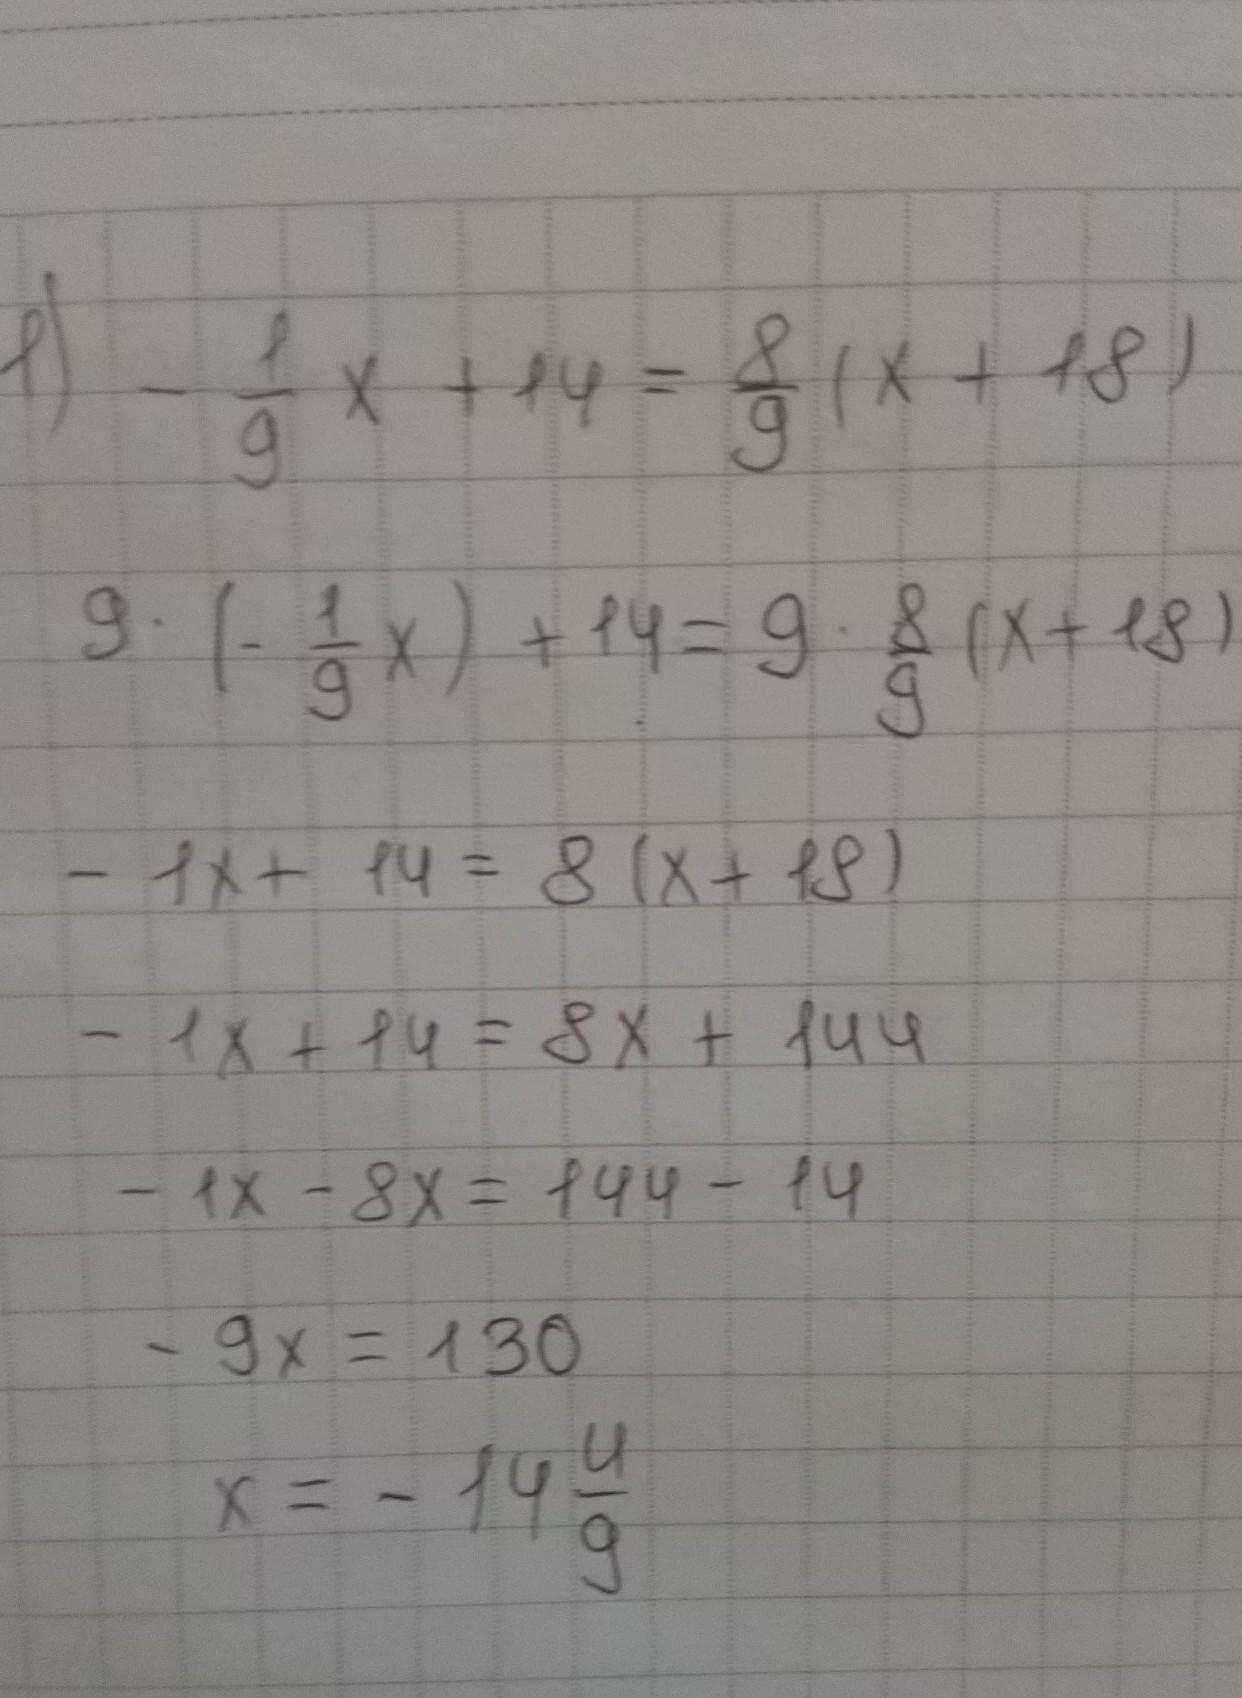 1) - 1/9 x + 14 = 8/9 (x + 18)
9 · (- 1/9 x) + 14 = 9 · 8/9 (x + 18)
- 1x + 14 = 8 (x + 18)
- 1x + 14 = 8x + 144
- 1x - 8x = 144 - 14
- 9x = 130
x = - 14 4/9